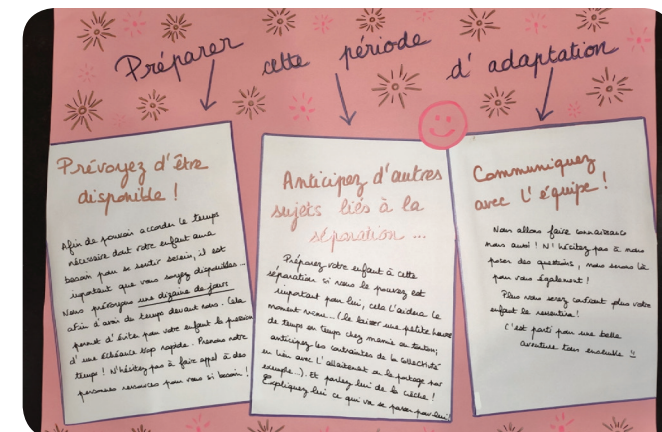 Préparer cette période d'adaptation
Prévoyez d'être
disponible !
Afin de pouvoir accorder le temps
nécessaire dont votre enfant aura
besoin pour se sentir serein, il est
important que vous soyez disponibles...
Nous prévoyons une dizaine de jours
afin d'avoir du temps devant nous. Cela
permet d'éviter pour votre enfant la pression
d'une échéance trop rapide. Prenons notre
temps ! N'hésitez pas à faire appel à des
personnes ressources pour vous si besoin !
Anticipez d'autres
sujets liés à la
séparation ...
Préparez votre enfant à cette
séparation si vous le pouvez est
important pour lui, cela l'aidera le
moment venu... (le laisser une petite heure
de temps en temps chez mamie ou tonton;
anticipez les contraintes de la collectivité
en lien avec l'allaitement ou le portage par
exemple...). Et parlez lui de la crèche !
Expliquez lui ce qui va se passer pour lui!
Communiquez
avec l'équipe!
Nous allons faire connaissance
nous aussi ! N'hésitez pas à nous
poser des questions, nous serons là
pour vous également !
Plus vous serez confiant plus votre
enfant le ressentira!
C'est parti pour une belle
aventure tous ensemble !!